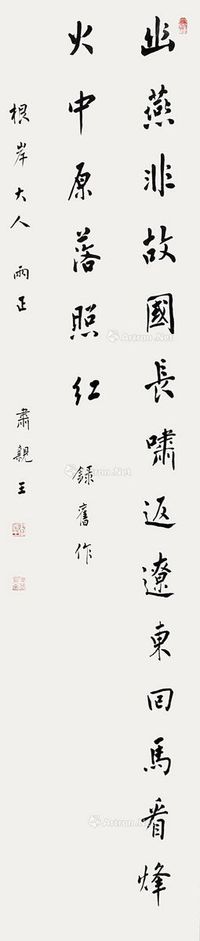 幽燕非故國長嘯返遼東回馬看烽
火中原落照紅
錄舊作
根岸大人雨正
肅親王